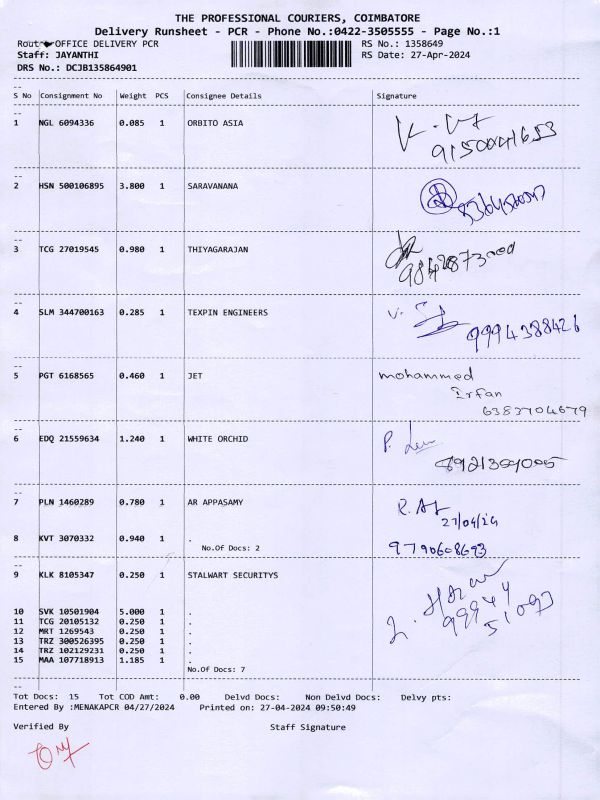 THE PROFESSIONAL COURIERS, COIMBATORE
Delivery Runsheet - PCR - Phone No.:0422-3505555 - Page No.:1
Route OFFICE DELIVERY PCR RS No.: 1358649
Staff: JAYANTHI RS Date: 27-Apr-2024
DRS No.: DCJB135864901
S No Consignment No Weight PCS Consignee Details Signature
1 NGL 6094336 0.085 1 ORBITO ASIA
9150041653
2 HSN 500106895 3.800 1 SARAVANANA
3 TCG 27019545 0.980 1 THIYAGARAJAN
4 SLM 344700163 0.285 1 TEXPIN ENGINEERS
9994388426
5 PGT 6168565 0.460 1 JET mohammed
Irfan
6383704679
6 EDQ 21559634 1.240 1 WHITE ORCHID
7 PLN 1460289 0.780 1 AR APPASAMY
27/04/24
8 KVT 3070332 0.940 1 .
No.Of Docs: 2 9790608693
9 KLK 8105347 0.250 1 STALWART SECURITYS
99944
51093
10 SVK 10501904 5.000 1 .
11 TCG 20105132 0.250 1 .
12 MRT 1269543 0.250 1 .
13 TRZ 300526395 0.250 1 .
14 TRZ 102129231 0.250 1 .
15 MAA 107718913 1.185 1 .
No.Of Docs: 7
Tot Docs: 15 Tot COD Amt: 0.00 Delvd Docs: Non Delvd Docs: Delvy pts:
Entered By :MENAKAPCR 04/27/2024 Printed on: 27-04-2024 09:50:49
Verified By Staff Signature